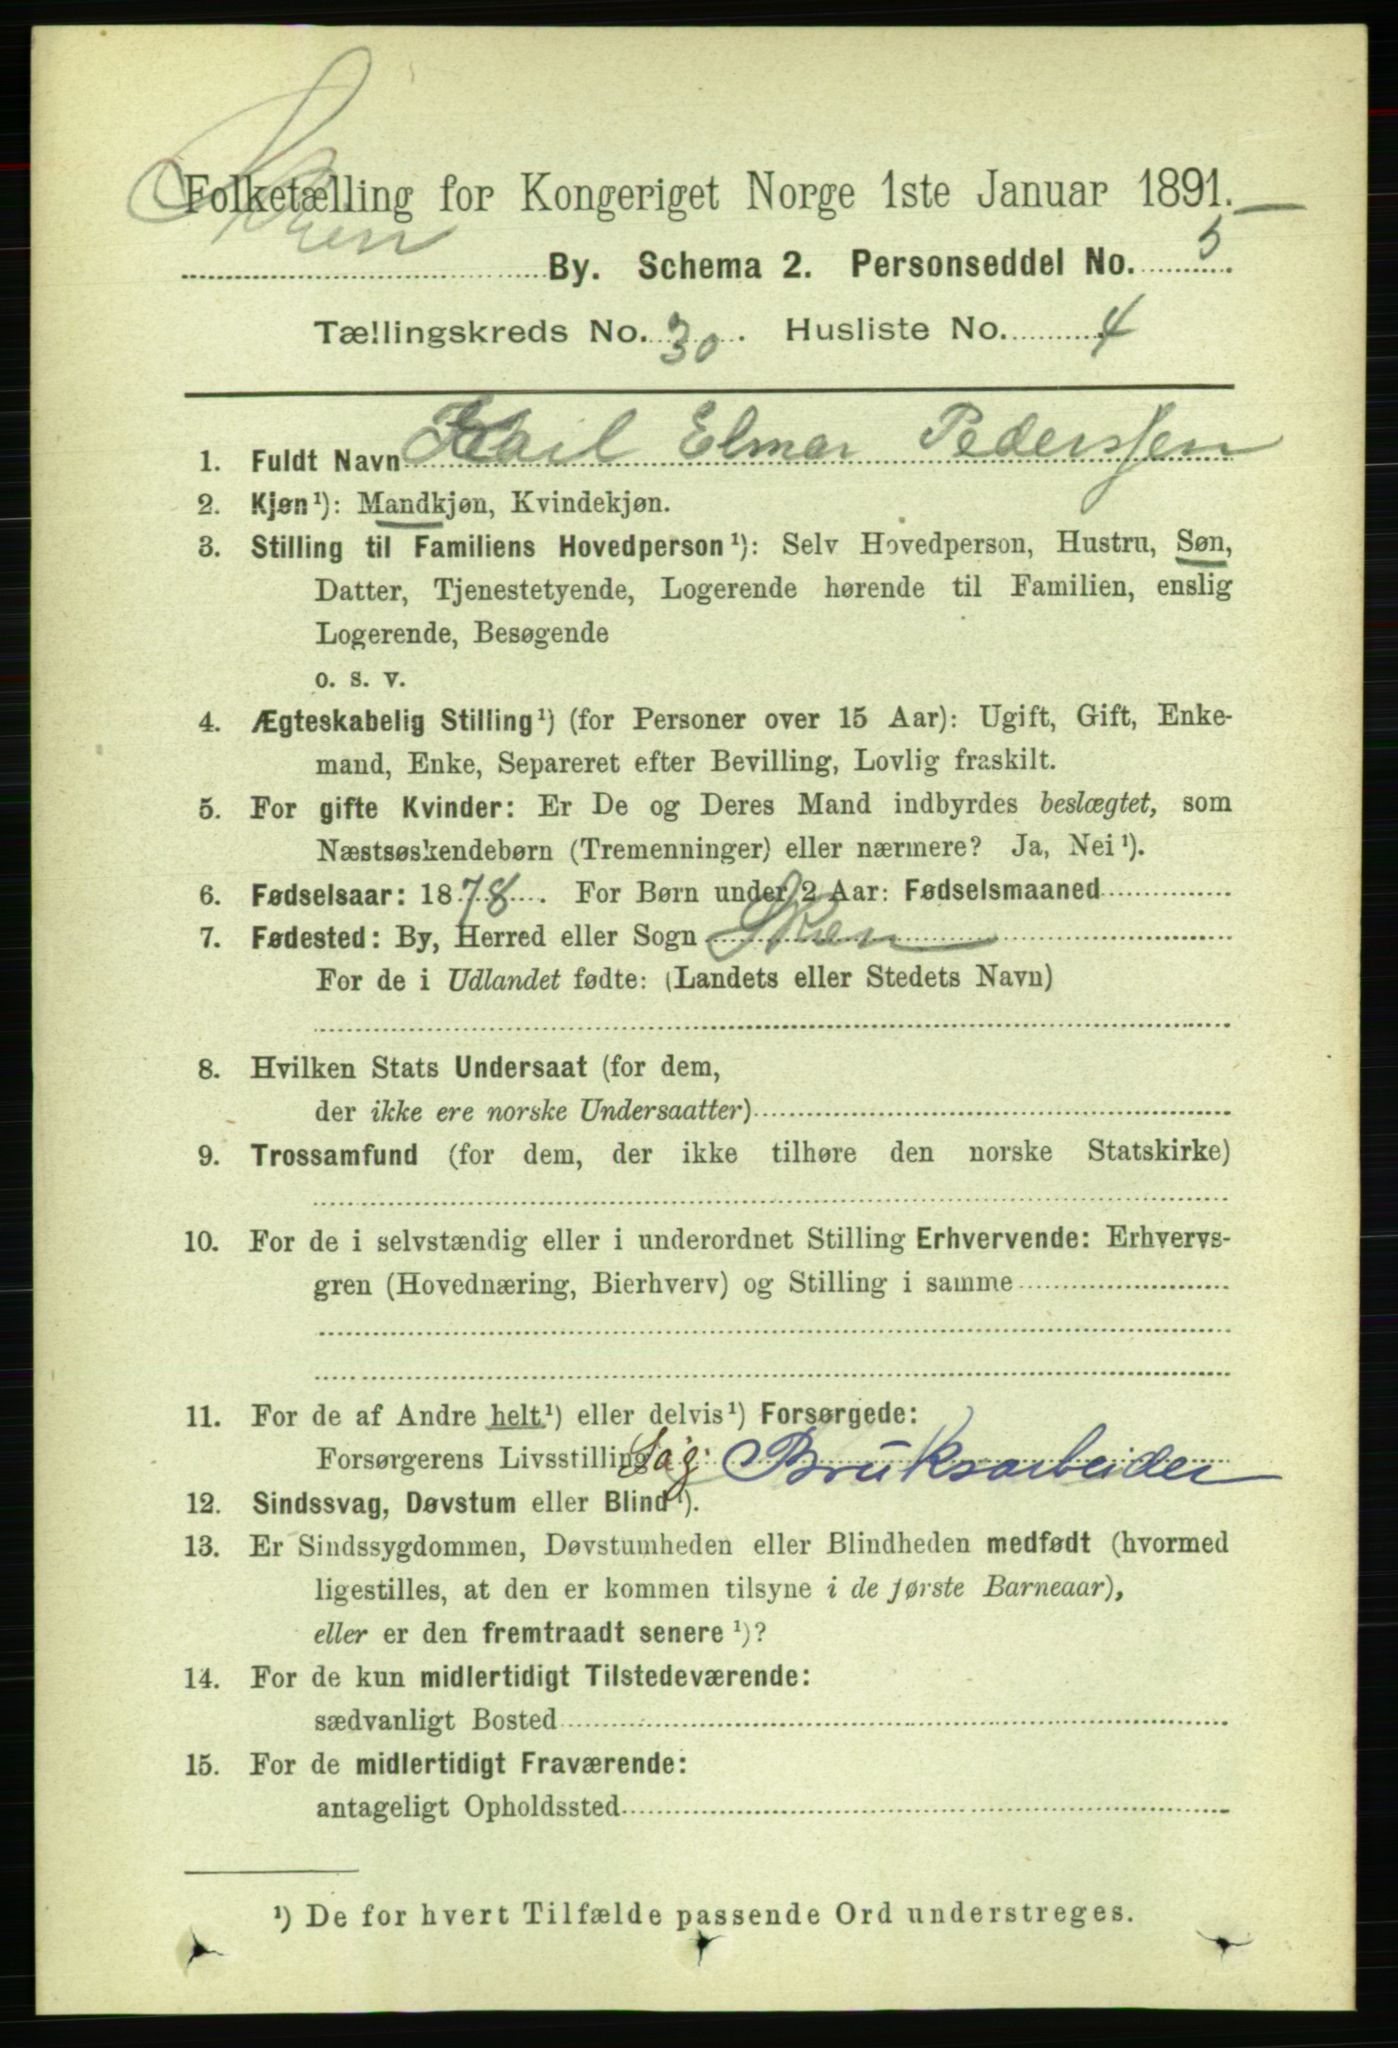 Folketælling for Kongeriget Norge 1ste Januar 1891.
Skien By. Schema 2. Personseddel No. 5
Tællingskreds No. 30. Husliste No. 4
1. Fuldt Navn Karl Elmar Pederssen
2. Kjøn¹): Mandkjøn, Kvindekjøn.
3. Stilling til Familiens Hovedperson¹): Selv Hovedperson, Hustru, Søn,
Datter, Tjenestetyende, Logerende hørende til Familien, enslig
Logerende, Besøgende
o. s. v.
4. Ægteskabelig Stilling¹) (for Personer over 15 Aar): Ugift, Gift, Enke-
mand, Enke, Separeret efter Bevilling, Lovlig fraskilt.
5. For gifte Kvinder: Er De og Deres Mand indbyrdes beslægtet, som
Næstsøskendebørn (Tremenninger) eller nærmere? Ja, Nei¹).
6. Fødselsaar: 1878. For Børn under 2 Aar: Fødselsmaaned
7. Fødested: By, Herred eller Sogn Skien
For de i Udlandet fødte: (Landets eller Stedets Navn)
8. Hvilken Stats Undersaat (for dem,
der ikke ere norske Undersaatter)
9. Trossamfund (for dem, der ikke tilhøre den norske Statskirke)
10. For de i selvstændig eller i underordnet Stilling Erhvervende: Erhvervs-
gren (Hovednæring, Bierhverv) og Stilling i samme
11. For de af Andre helt¹) eller delvis¹) Forsørgede:
Forsørgerens Livsstilling Sag: Bruksarbeider
12. Sindssvag, Døvstum eller Blind¹).
13. Er Sindssygdommen, Døvstumheden eller Blindheden medfødt (hvormed
ligestilles, at den er kommen tilsyne i de første Barneaar),
eller er den fremtraadt senere¹)?
14. For de kun midlertidigt Tilstedeværende:
sædvanligt Bosted
15. For de midlertidigt Fraværende:
antageligt Opholdssted
¹) De for hvert Tilfælde passende Ord understreges.